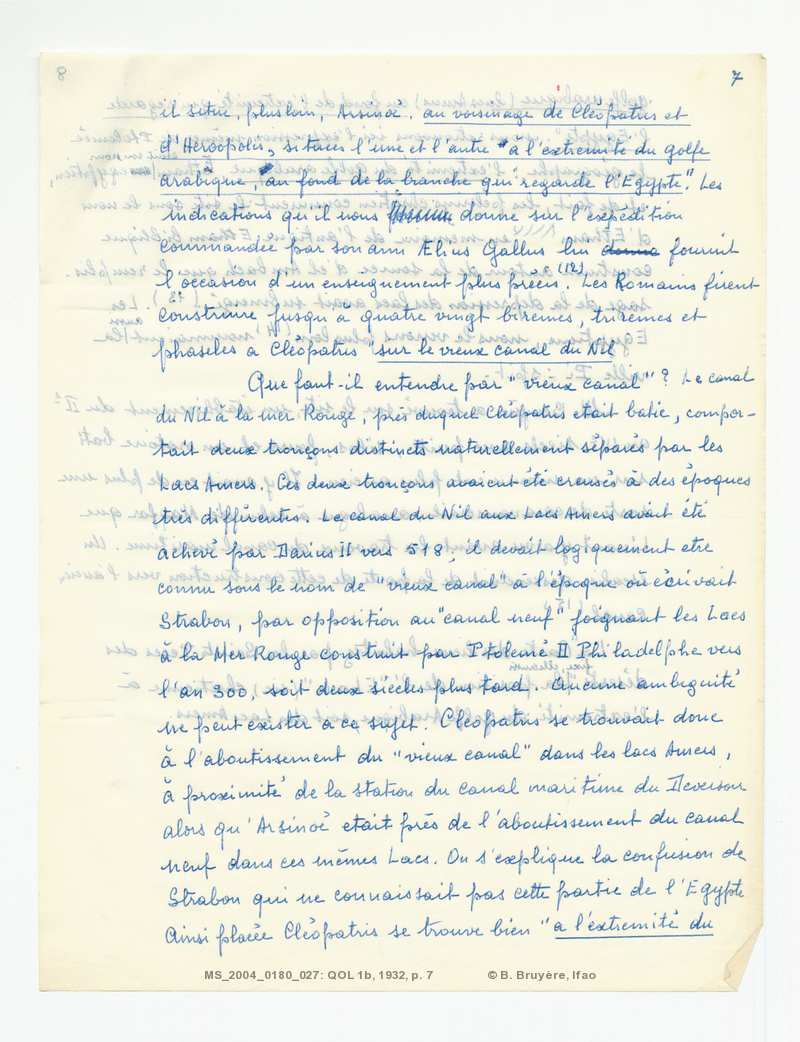 7
il situe, plus loin, Arsinoé. au voisinage de Cléopatris et
d'Heröopolis, situées l'une et l'autre "à l'extremité du golfe
arabique, au fond de la branche qui regarde l'Egypte". Les
indications qu'il nous donne sur l'expédition
commandée par son ami Ælius Gallus lui donne fournit
l'occasion d'un enseignement plus précis. (12) Les Romains firent
construire jusqu'à quatre vingt birèmes, trirèmes et
phasèles à Cléopatris "sur le vieux canal du Nil
Que faut-il entendre par "vieux canal"? Le canal
du Nil à la mer Rouge, près duquel Cléopatris etait batie, compor-
tait deux tronçons distincts naturellement séparés par les
Lacs Amers. Ces deux tronçons avaient été creusés à des époques
très différentes. Le canal du Nil aux Lacs Amers avait été
achevé par Darius II vers 518, il devait logiquement etre
connu sous le nom de "vieux canal" à l'époque où écrivait
Strabon, par opposition au "canal neuf" joignant les Lacs
à la Mer Rouge construit par Ptolemé II Philadelphe vers
l'an 300, soit deux siècles plus tard. Aucune ambiguité
ne peut exister à ce sujet. Cléopatris se trouvait donc
à l'aboutissement du "vieux canal" dans les lacs Amers,
à proximité de la station du canal maritime du Deversoir
alors qu'Arsinoé etait près de l'aboutissement du canal
neuf dans ces mêmes Lacs. On s'explique la confusion de
Strabon qui ne connaissait pas cette partie de l'Egypte
Ainsi placée Cléopatris se trouve bien "a l'extremité du
MS_2004_0180_027: QOL 1b, 1932, p. 7 © B. Bruyère, Ifao